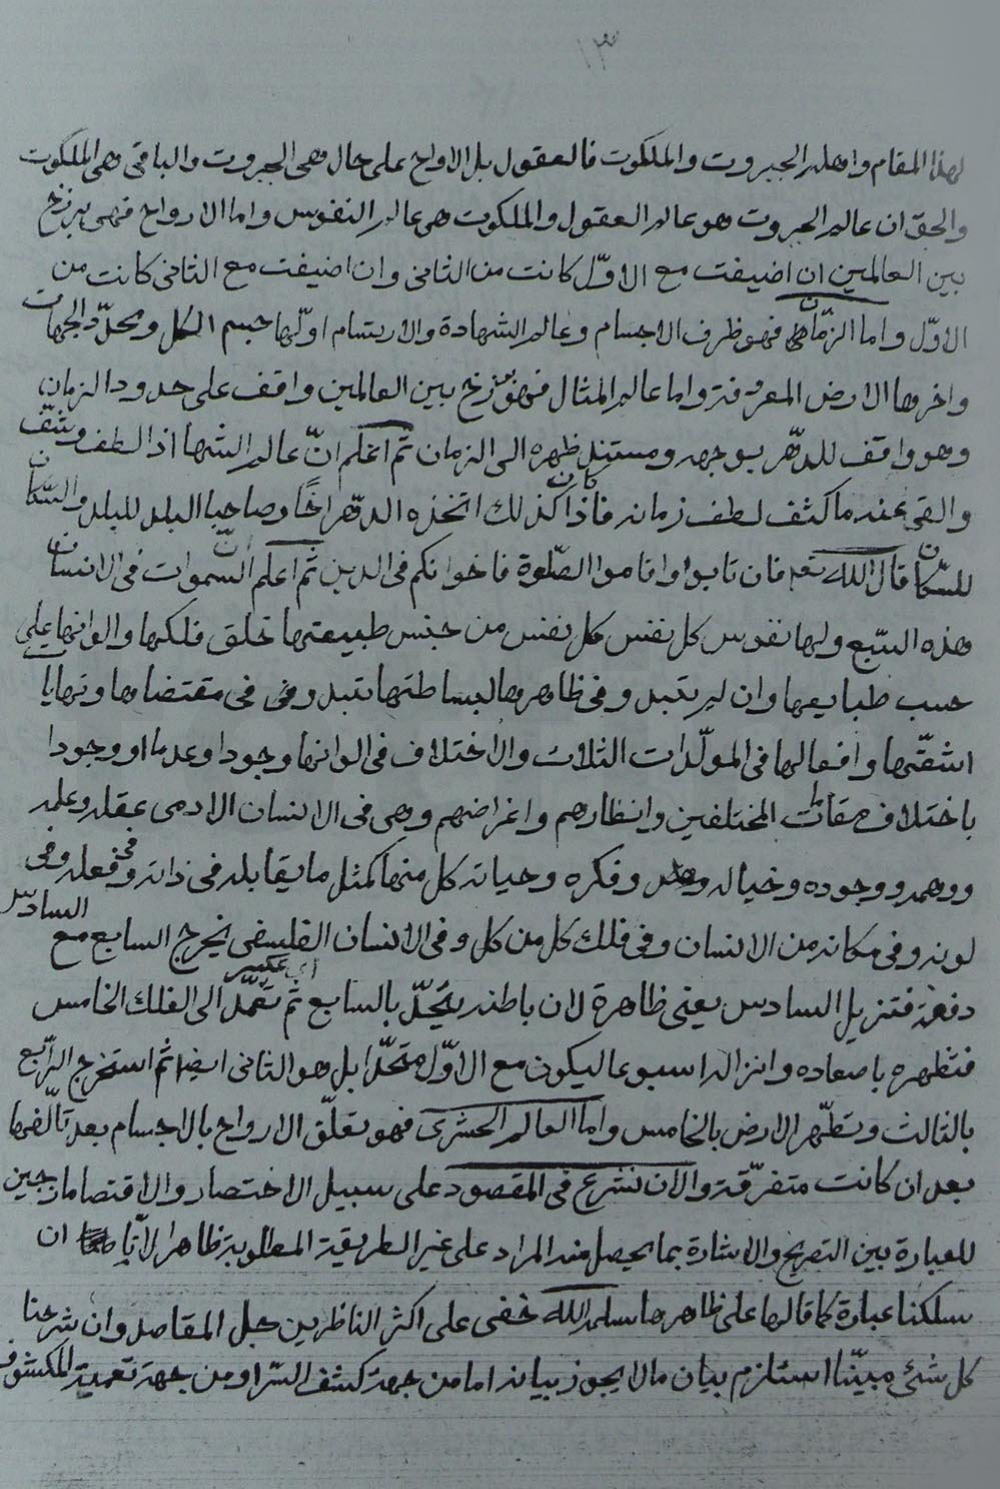 ١٣
لهذا المقام واهله الجبروت والملكوت فالعقول بل الارواح على حال وهى الجبروت والباقى وهى الملكوت
والحق ان عالم الجبروت هو عالم العقول والملكوت هى عالم النفوس واما الارواح فهى برزخ
بين العالمين ان اضيفت مع الاوّل كانت من الثانى وان اضيفت مع الثانى كانت من
الاوّل واما الزمان فهو ظرف الاجسام وعالم الشهادة والارتسام اوّلها جسم الكل ومحدّد الجهات
واخرها الارض المعرفة واما عالم المثال فهو برزخ بين العالمين واقف على حدود الزمان
وهو واقف للدهر بوجهه ومستند ظهره الى الزمان ثم اعلم انّ عالم الشها اذا لطف وشفّ
والقى عنه ما كثف لطف زمانه فاذا كان كذلك اتخذه الدهر اخًا وصاحبا البلد للبلد والسّكان
للسّكان قال الله تعه فان تابوا واقاموا الصّلوة فاخوانكم فى الدين ثم اعلم انّ السّموات فى الانسان
هذه السّبع ولها نفوس كل نفس من جنس طبيعتها خلق فلكها والوانها على
حسب طبايعها وان لم يتبد وفى ظاهرها لبساطتها تبدو فى مقتضاها ونهايا
اشعّتها وافعالها فى المولّدات الثلاث والاختلاف فى الوانها وجودا وعدما او وجودا
باختلاف صفات المختلفين وانظارهم واغراضهم وهى فى الانسان الادمى عقله وعلمه
ووهمه ووجوده وخياله وفكره وحياته كل منها كمثل ما يقابله فى ذاته وفى فعله وفى
لونه وفى مكانه من الانسان وفى فلك كل من كل وفى الانسان الفلسفى يخرج السابع مع السادس
دفعة فتنزيل السادس يعنى ظاهرة لان باطنه يتحلّ بالسابع ثم تعمد الى الفلك الخامس
فتطهره باصعاده وانزاله اسبوعا ليكون مع الاوّل متحدّا بل هو الثانى ايضا ثم استخرج الرّابع
بالثالث وتطهّر الارض بالخامس واما العالم الحشرى فهو تعلّق الارواح بالاجسام بعد تآلفها
بعد ان كانت متفرّقة والآن نشرع فى المقصود على سبيل الاختصار والاقتصار مازجين
للعبارة بين التصريح والاشارة بما يحصل منه المراد على غير الطريقة المطلوبة ظاهرا لانّا ان
سلكنا عبارة كما قالها على ظاهرها سلمه الله خفى على اكثر الناظرين جل المقاصد وان شرحنا
كل شئ مبيّنا استلزم بيان ما لا يجوز بيانه اما من جهة كشف السّر او من جهة تعمية المكشوف